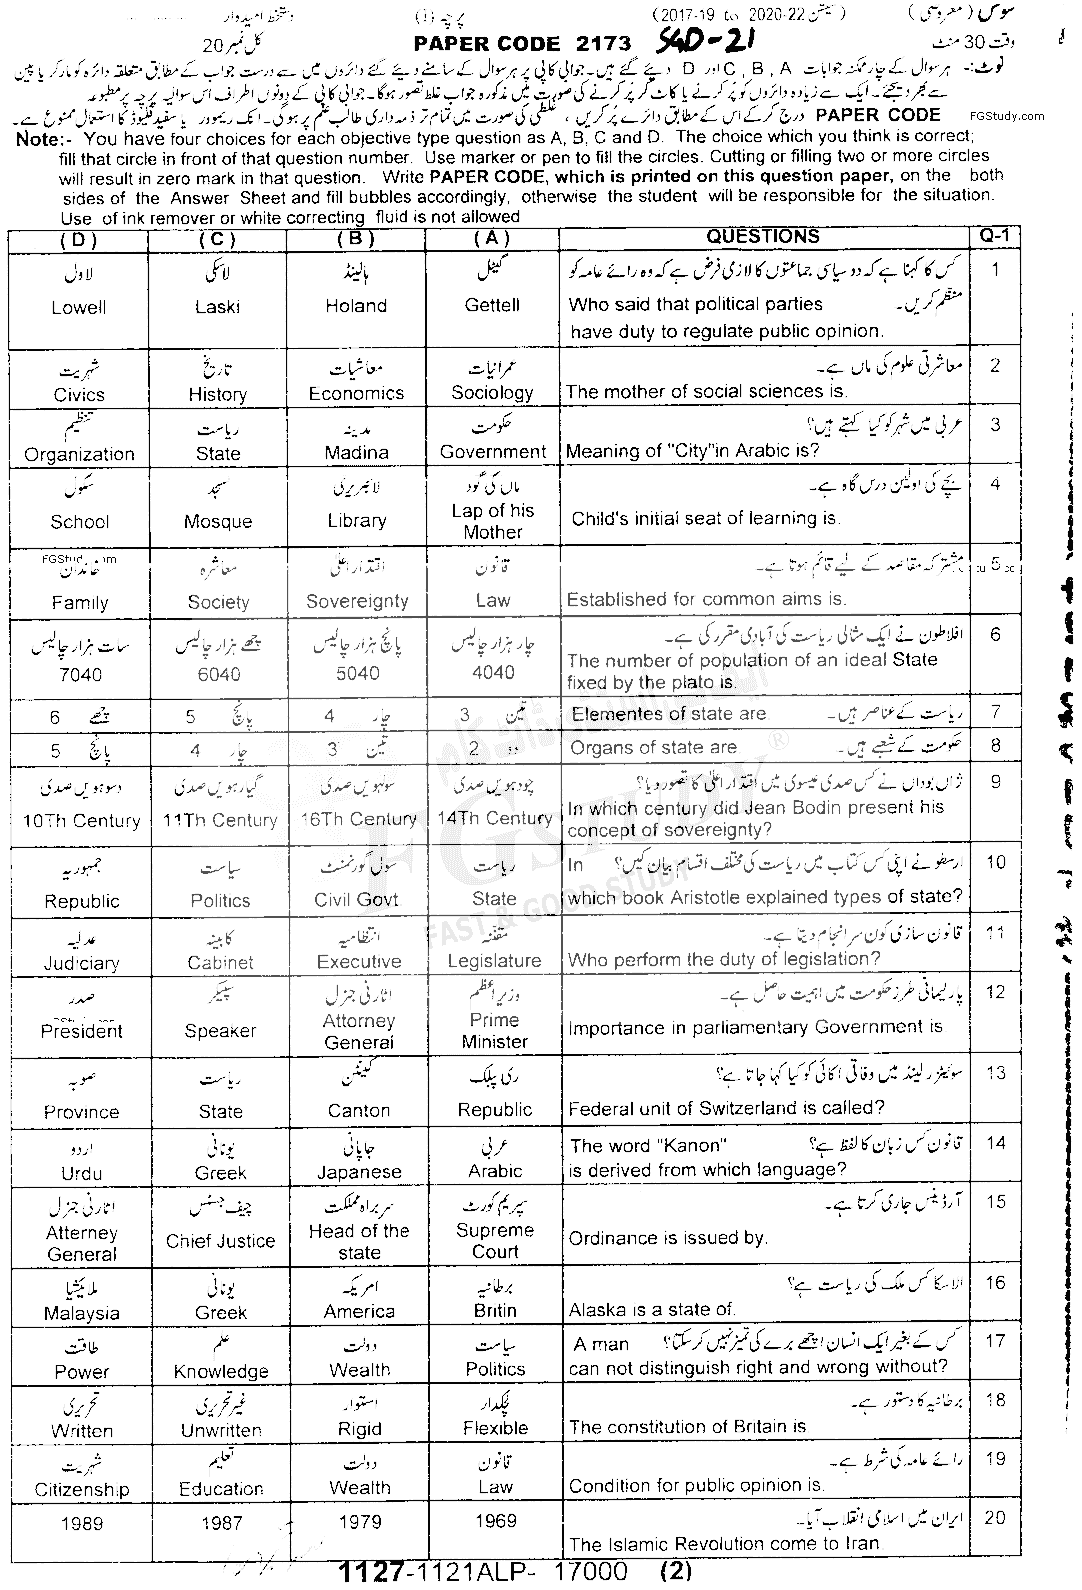 سوکس (معروضی) (سیشن 2020-22 to 2017-19) پرچہ (I) دستخط امیدوار
وقت 30 منٹ PAPER CODE 2173 SGD-21 کل نمبر 20
نوٹ:- ہر سوال کے چار ممکنہ جوابات A ، B ، C اور D دیئے گئے ہیں۔ جوابی کاپی پر ہر سوال کے سامنے دیئے گئے دائروں میں سے درست جواب کے مطابق متعلقہ دائرہ کو مارکر یا پین
سے بھر دیجئے۔ ایک سے زیادہ دائروں کو پر کرنے یا کاٹ کر پر کرنے کی صورت میں مذکورہ جواب غلط تصور ہوگا۔ جوابی کاپی کے دونوں اطراف اس سوالیہ پرچہ پر مطبوعہ
PAPER CODE درج کر کے اس کے مطابق دائرے پر کریں، غلطی کی صورت میں تمام تر ذمہ داری طالب علم پر ہوگی۔ انک ریمور یا سفید فلیوڈ کا استعمال ممنوع ہے۔
FGStudy.com
Note:- You have four choices for each objective type question as A, B, C and D. The choice which you think is correct;
fill that circle in front of that question number. Use marker or pen to fill the circles. Cutting or filling two or more circles
will result in zero mark in that question. Write PAPER CODE, which is printed on this question paper, on the both
sides of the Answer Sheet and fill bubbles accordingly, otherwise the student will be responsible for the situation.
Use of ink remover or white correcting fluid is not allowed
(D) (C) (B) (A) QUESTIONS Q-1
لاول لاسکی ہالینڈ گیٹل کس کا کہنا ہے کہ دو سیاسی جماعتوں کا لازمی فرض ہے کہ وہ رائے عامہ کو 1
Lowell Laski Holand Gettell Who said that political parties منظم کریں۔
have duty to regulate public opinion.
شہریت تاریخ معاشیات عمرانیات معاشرتی علوم کی ماں ہے۔ 2
Civics History Economics Sociology The mother of social sciences is.
تنظیم ریاست مدینہ حکومت عربی میں شہر کو کیا کہتے ہیں؟ 3
Organization State Madina Government Meaning of "City"in Arabic is?
سکول مسجد لائبریری ماں کی گود بچے کی اولین درس گاہ ہے۔ 4
School Mosque Library Lap of his Mother Child's initial seat of learning is.
خاندان معاشرہ اقتدار اعلیٰ قانون مشترکہ مقاصد کے لیے قائم ہوتا ہے۔ 5
Family Society Sovereignty Law Established for common aims is.
سات ہزار چالیس چھے ہزار چالیس پانچ ہزار چالیس چار ہزار چالیس افلاطون نے ایک مثالی ریاست کی آبادی مقرر کی ہے۔ 6
7040 6040 5040 4040 The number of population of an ideal State
fixed by the plato is.
6 چھے 5 پانچ 4 چار 3 تین Elementes of state are ریاست کے عناصر ہیں۔ 7
5 پانچ 4 چار 3 تین 2 دو Organs of state are حکومت کے شعبے ہیں۔ 8
دسوہویں صدی گیارہویں صدی سولہویں صدی چودہویں صدی ژاں بوداں نے کس صدی عیسوی میں اقتدار اعلیٰ کا تصور دیا؟ 9
10Th Century 11Th Century 16Th Century 14Th Century In which century did Jean Bodin present his
concept of sovereignty?
جمہوریہ سیاست سول گورنمنٹ ریاست ارسطو نے اپنی کس کتاب میں ریاست کی مختلف اقسام بیان کیں؟ In 10
Republic Politics Civil Govt State which book Aristotle explained types of state?
عدلیہ کابینہ انتظامیہ مقننہ قانون سازی کون سرانجام دیتا ہے۔ 11
Judiciary Cabinet Executive Legislature Who perform the duty of legislation?
صدر سپیکر اٹارنی جنرل وزیر اعظم پارلیمانی طرز حکومت میں اہمیت حاصل ہے۔ 12
President Speaker Attorney General Prime Minister Importance in parliamentary Government is
صوبہ ریاست کینٹن ری پبلک سوئیٹزرلینڈ میں وفاقی اکائی کو کیا کہا جاتا ہے؟ 13
Province State Canton Republic Federal unit of Switzerland is called?
اردو یونانی جاپانی عربی The word "Kanon" قانون کس زبان کا لفظ ہے؟ 14
Urdu Greek Japanese Arabic is derived from which language?
اٹارنی جنرل چیف جسٹس سربراہ مملکت سپریم کورٹ آرڈیننس جاری کرتا ہے۔ 15
Attorney General Chief Justice Head of the state Supreme Court Ordinance is issued by.
ملائیشیا یونانی امریکہ برطانیہ الاسکا کس ملک کی ریاست ہے؟ 16
Malaysia Greek America Britin Alaska is a state of.
طاقت علم دولت سیاست کس کے بغیر ایک انسان اچھے برے کی تمیز نہیں کر سکتا؟ A man 17
Power Knowledge Wealth Politics can not distinguish right and wrong without?
تحریری غیر تحریری استوار لچکدار برطانیہ کا دستور ہے۔ 18
Written Unwritten Rigid Flexible The constitution of Britain is
شہریت تعلیم دولت قانون رائے عامہ کی شرط ہے۔ 19
Citizenship Education Wealth Law Condition for public opinion is.
1989 1987 1979 1969 ایران میں اسلامی انقلاب آیا۔ 20
The Islamic Revolution come to Iran.
1127-1121ALP- 17000 (2)
FGSTUDY
FAST & GOOD STUDY